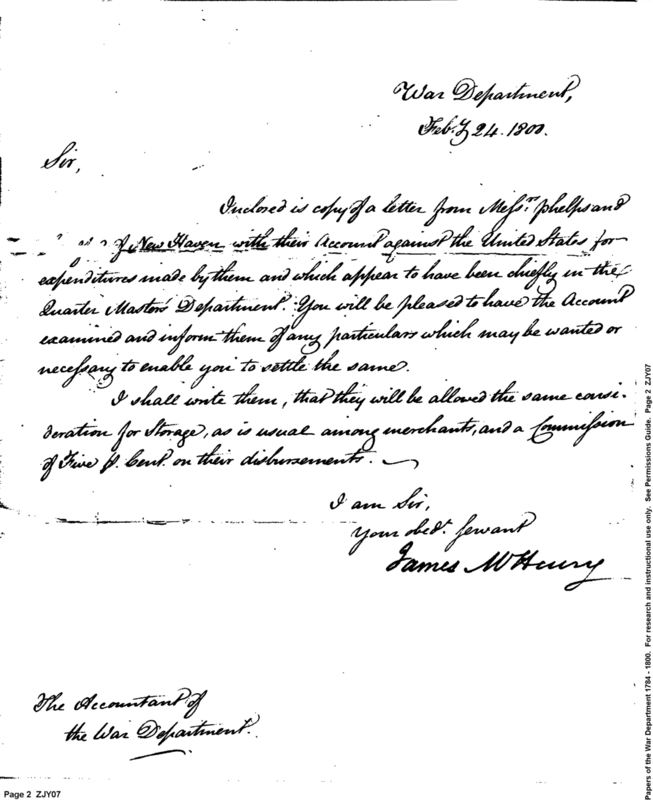 War Department,
Feby 24. 1800.
Sir,
Inclosed is copy of a letter from Messrs. phelps and
of New Haven with their Account against the United States for
expenditures made by them and which appear to have been chiefly in the
Quarter Master's Department. You will be pleased to have the Account
examined and inform them of any particulars which may be wanted or
necessary to enable you to settle the same.
I shall write them, that they will be allowed the same consi-
deration for Storage, as is usual among merchants, and a Commission
of Five p. Cent. on their disbursements.
I am Sir,
Your obedt. servant
James McHenry
The Accountant of
the War Department.
Page 2 ZJY07
Papers of the War Department 1784 - 1800. For research and instructional use only. See Permissions Guide. Page 2 ZJY07